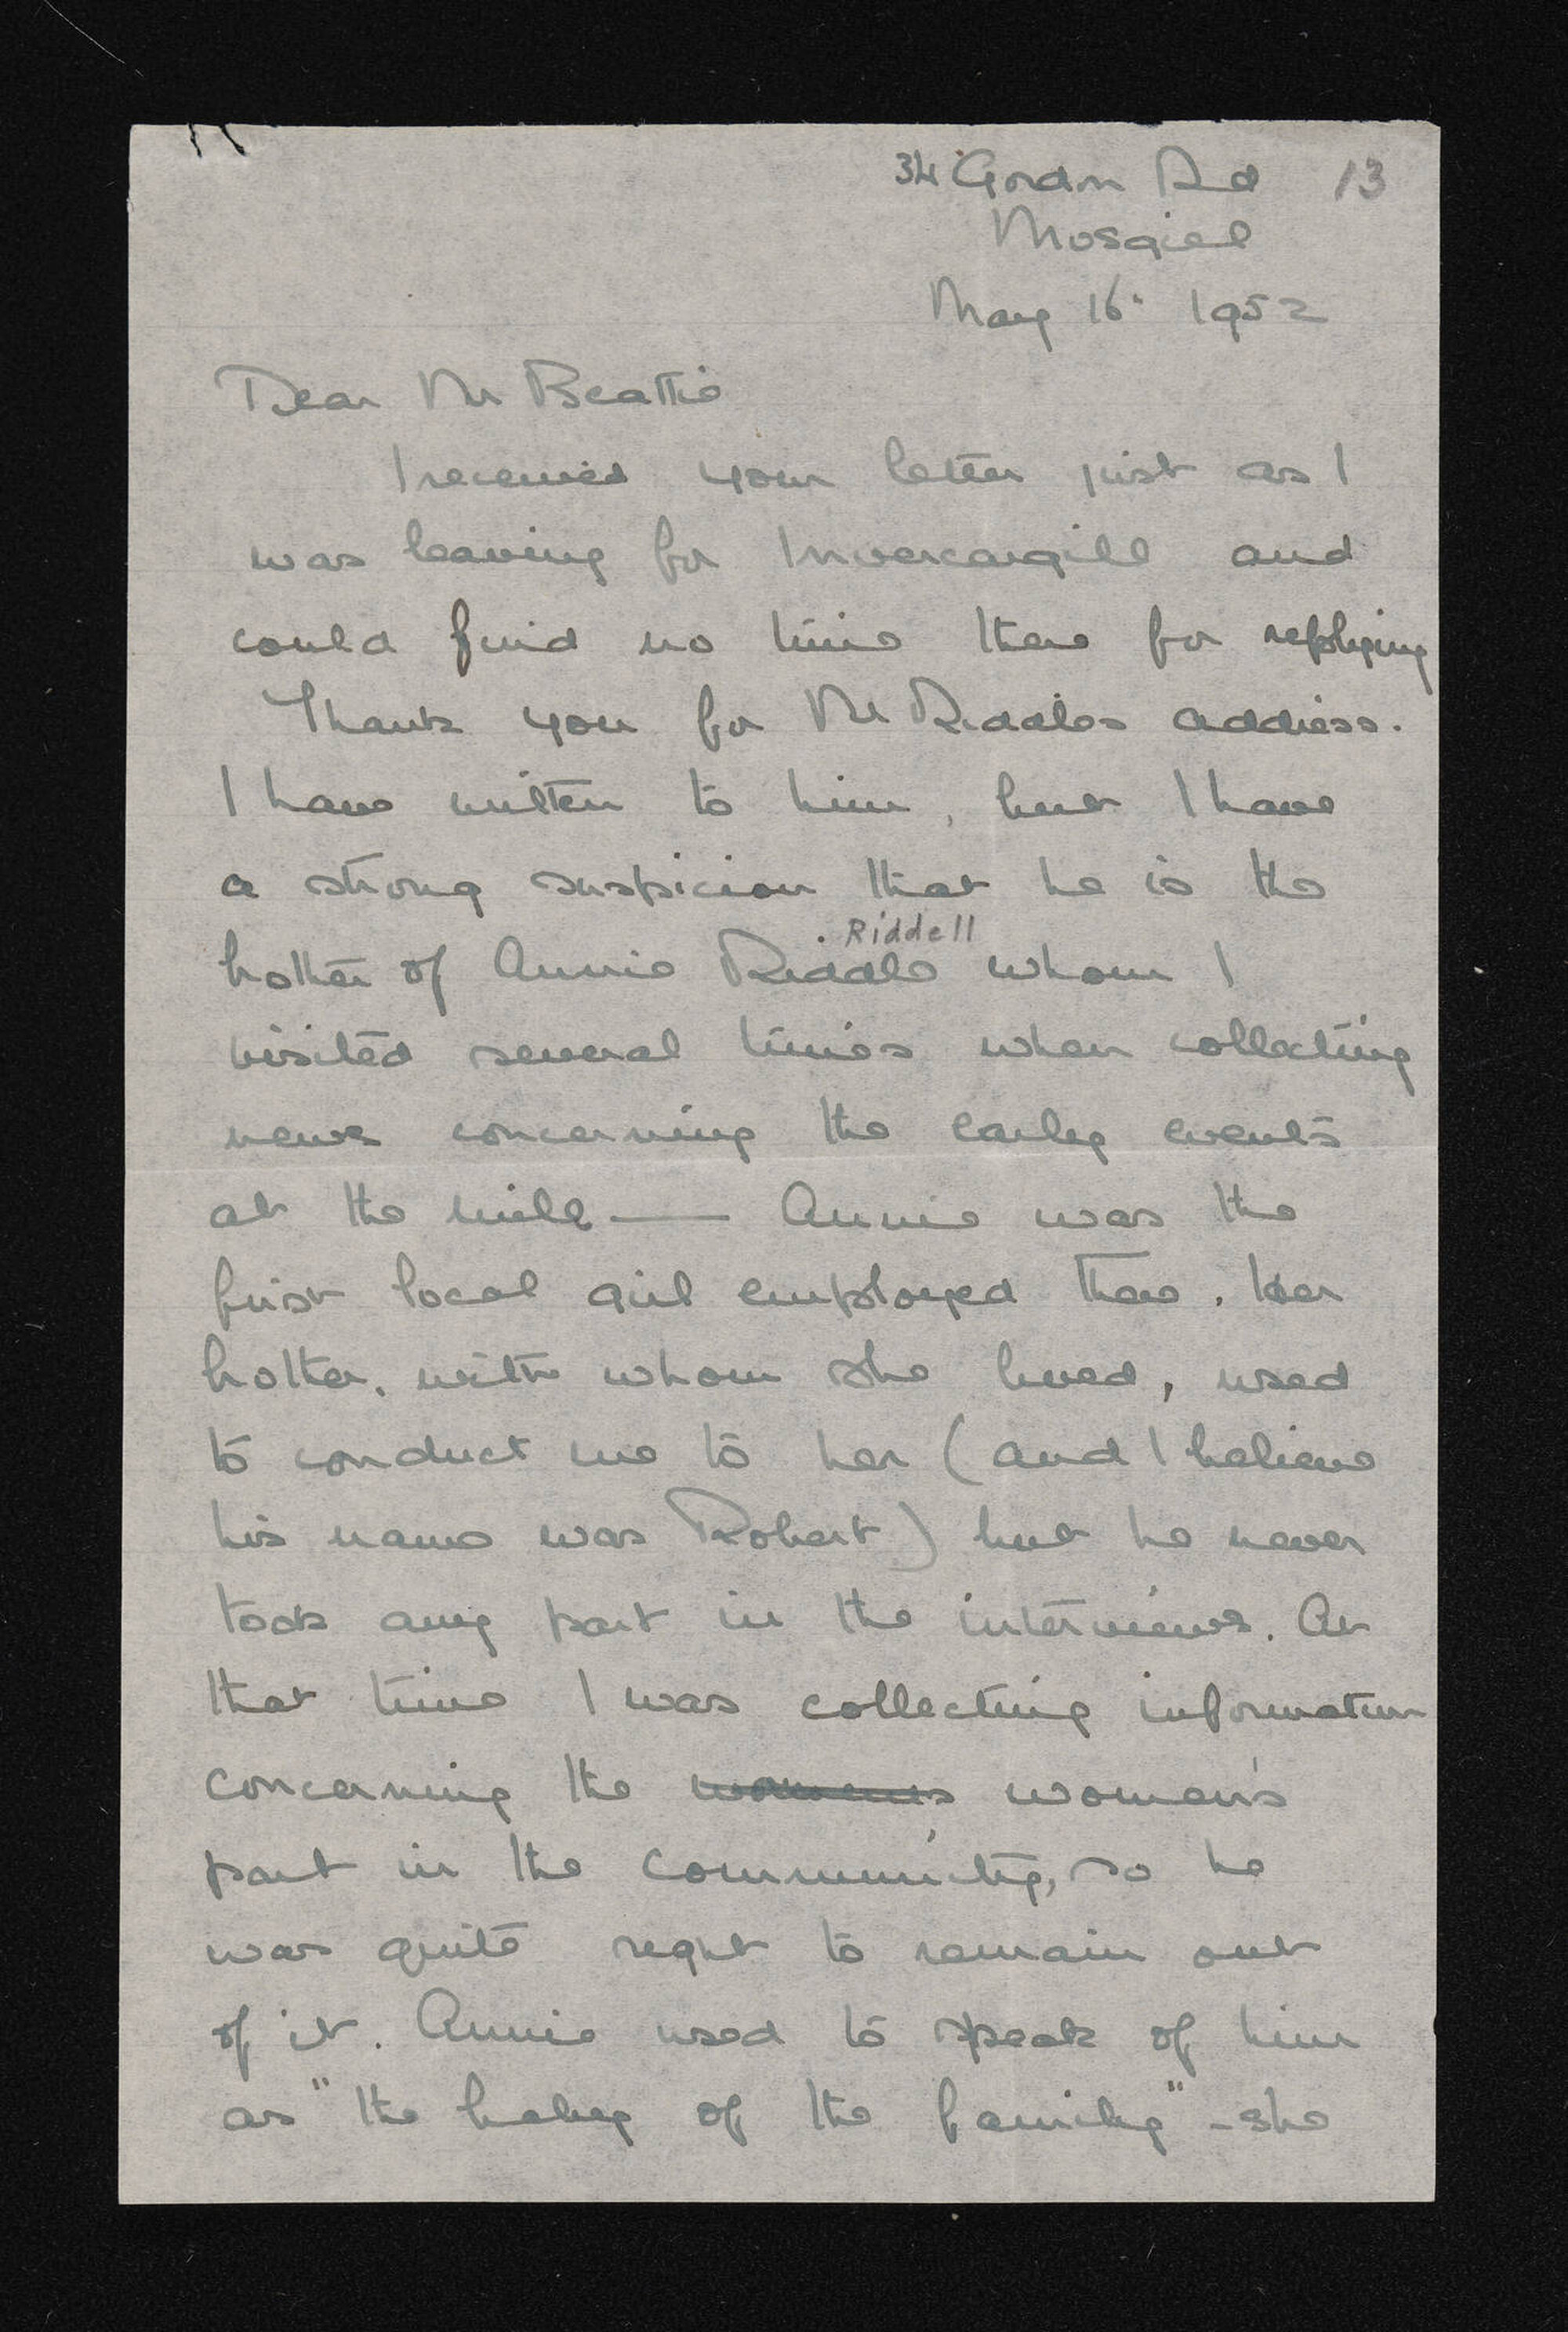 34 Gordon Rd 13
Mosgiel
May 16. 1952
Dear Mr Beattie
I received your letter just as I
was leaving for Invercargill and
could find no time there for replying
Thank you for Mr Riddles address.
I have written to him, but I have
a strong suspicion that he is the
. Riddell
brother of Annie Riddle whom I
visited several times when collecting
news concerning the early events
at the mill — Annie was the
first local girl employed there. Her
brother, with whom she lived, used
to conduct me to her (and I believe
his name was Robert) but he never
took any part in the interviews. At
that time I was collecting information
concerning the womens women's
part in the community, so he
was quite right to remain out
of it. Annie used to speak of him
as "the baby of the family" - she